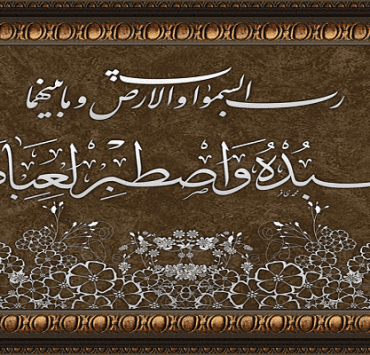 رب السموات والارض وما بینهما
ـبدهُ وَاصْطَبِرْ لِعِبَا